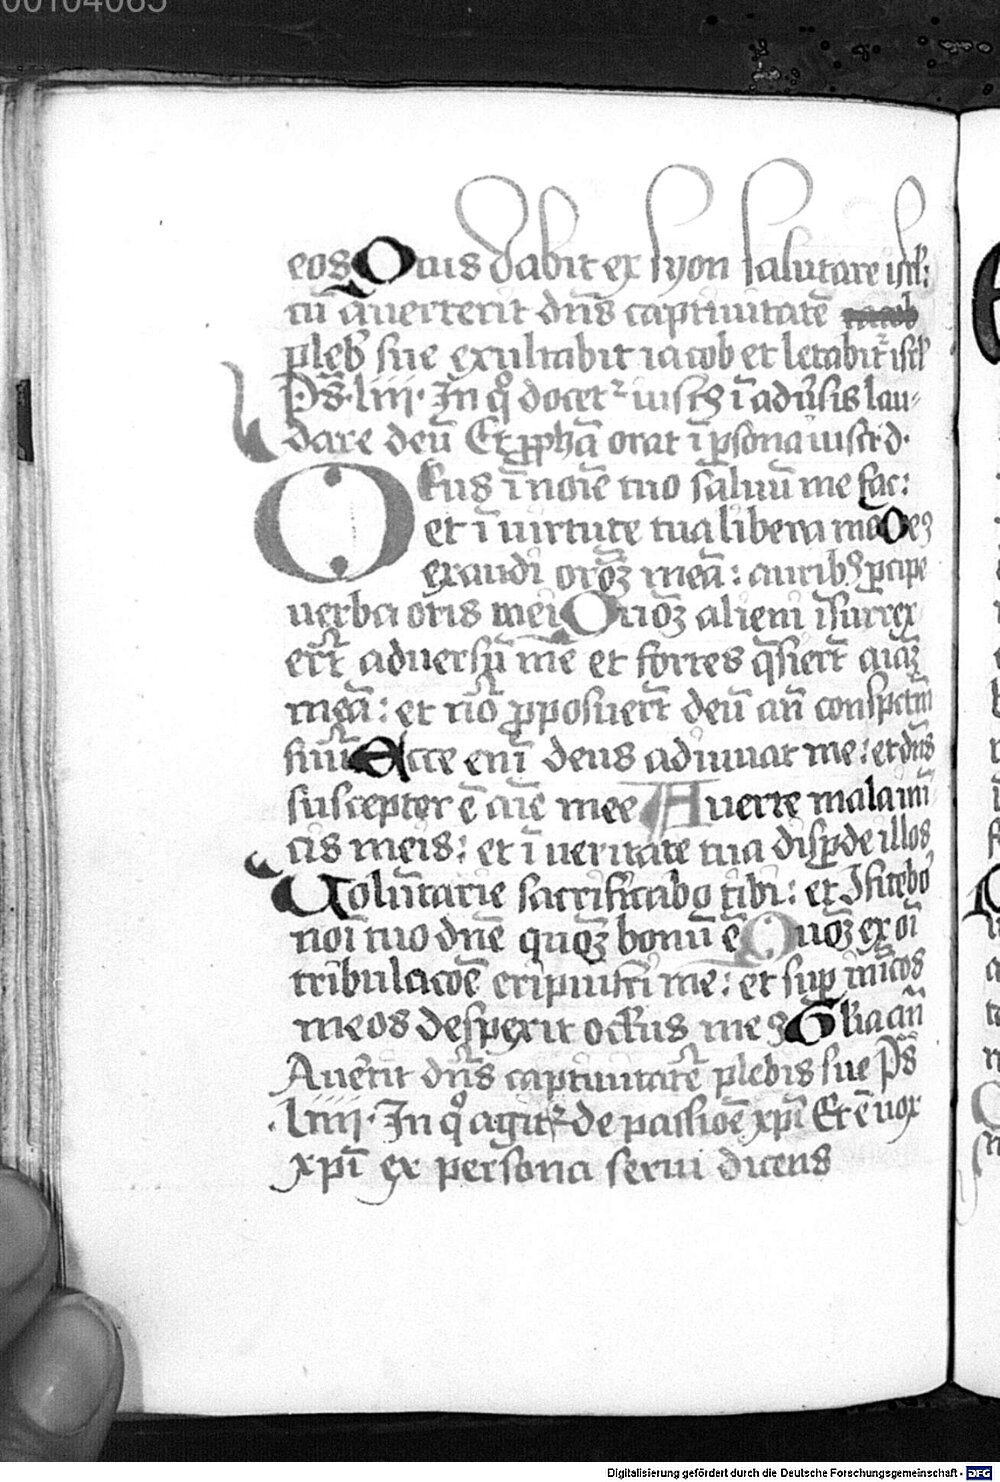 00104065
eos Quis dabit ex syon salutare isrl':
cū auerterit dn̄s captiuitatē
pleb' sue exultabit iacob et letabit᷑ isrl'
Ps̄ · liii · In qͦ docet᷑ iust9 ī adūsis lau-
dare deū Et ꝓph̄a orat ī ꝑsona iusti d·
Deus ī noīe tuo saluū me fac:
et ī uirtute tua libera me Deꝰ
exaudi oroꝫ meā: auribꝫ ꝑcipe
uerba oris mei Quoꝫ alieni īsurrex
ert̄ aduersū me et fortes q̄siert̄ aīaꝫ
meā: et nō ꝓposuert̄ deū an̄ conspctm̄
suū Ecce enī deus adiuuat me: et dn̄s
susceptor ē aīe mee Auerte mala inī
cis meis: et ī ueritate tua disꝑde illos
Volūtarie sacrificabo tibi: et ꝯfitebo᷑
noī tuo dn̄e quoꝫ bonū ē Quoꝫ ex oī
tribulacōe eripuisti me: et suꝑ inīcos
meos despexit oc'lus meꝰ Gl'ia an̄
Auertit dn̄s captiuitatē plebis sue Ps̄
· liiii · In qͦ agit᷑ de passiōe xp̄i Et ē uox
xp̄i ex persona serui dicens
Digitalisierung gefördert durch die Deutsche Forschungsgemeinschaft - DFG